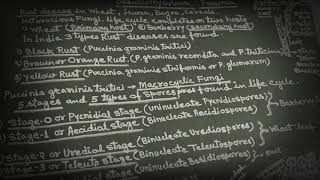 Rust disease in Wheat, Jawar, Bajra, Cereals
Heteroecious Fungi life cycle completes on two hosts
① Wheat (Primary host) ② Barberry (Secondary host)
In India 3 types Rust diseases are found.
1) Black Rust (Puccinia graminis tritici)
2) Brown or Orange Rust (P. graminis recondita and P. triticina)
3) Yellow Rust (Puccinia striiformis or P. glumarum)
Puccinia graminis tritici → Macrocyclic Fungi
5 stages and 5 types of spores found in life cycle.
Stage-0 or Pycnidial Stage (Uninucleate Pycnidiospores)
Stage-1 or Aecidial Stage (Binucleate Aecidiospores) → Barberry
Stage-2 or Uredial Stage (Binucleate Urediospores)
Stage-3 or Teleuto Stage (Binucleate Teleutospores) → Wheat
(Uninucleate Basidiospores) → soil